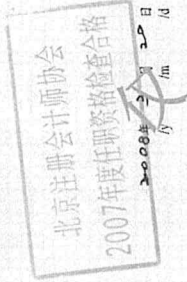 北京注册会计师协会
2007年度任职资格检查合格
2008年2月20日
/y /m /d